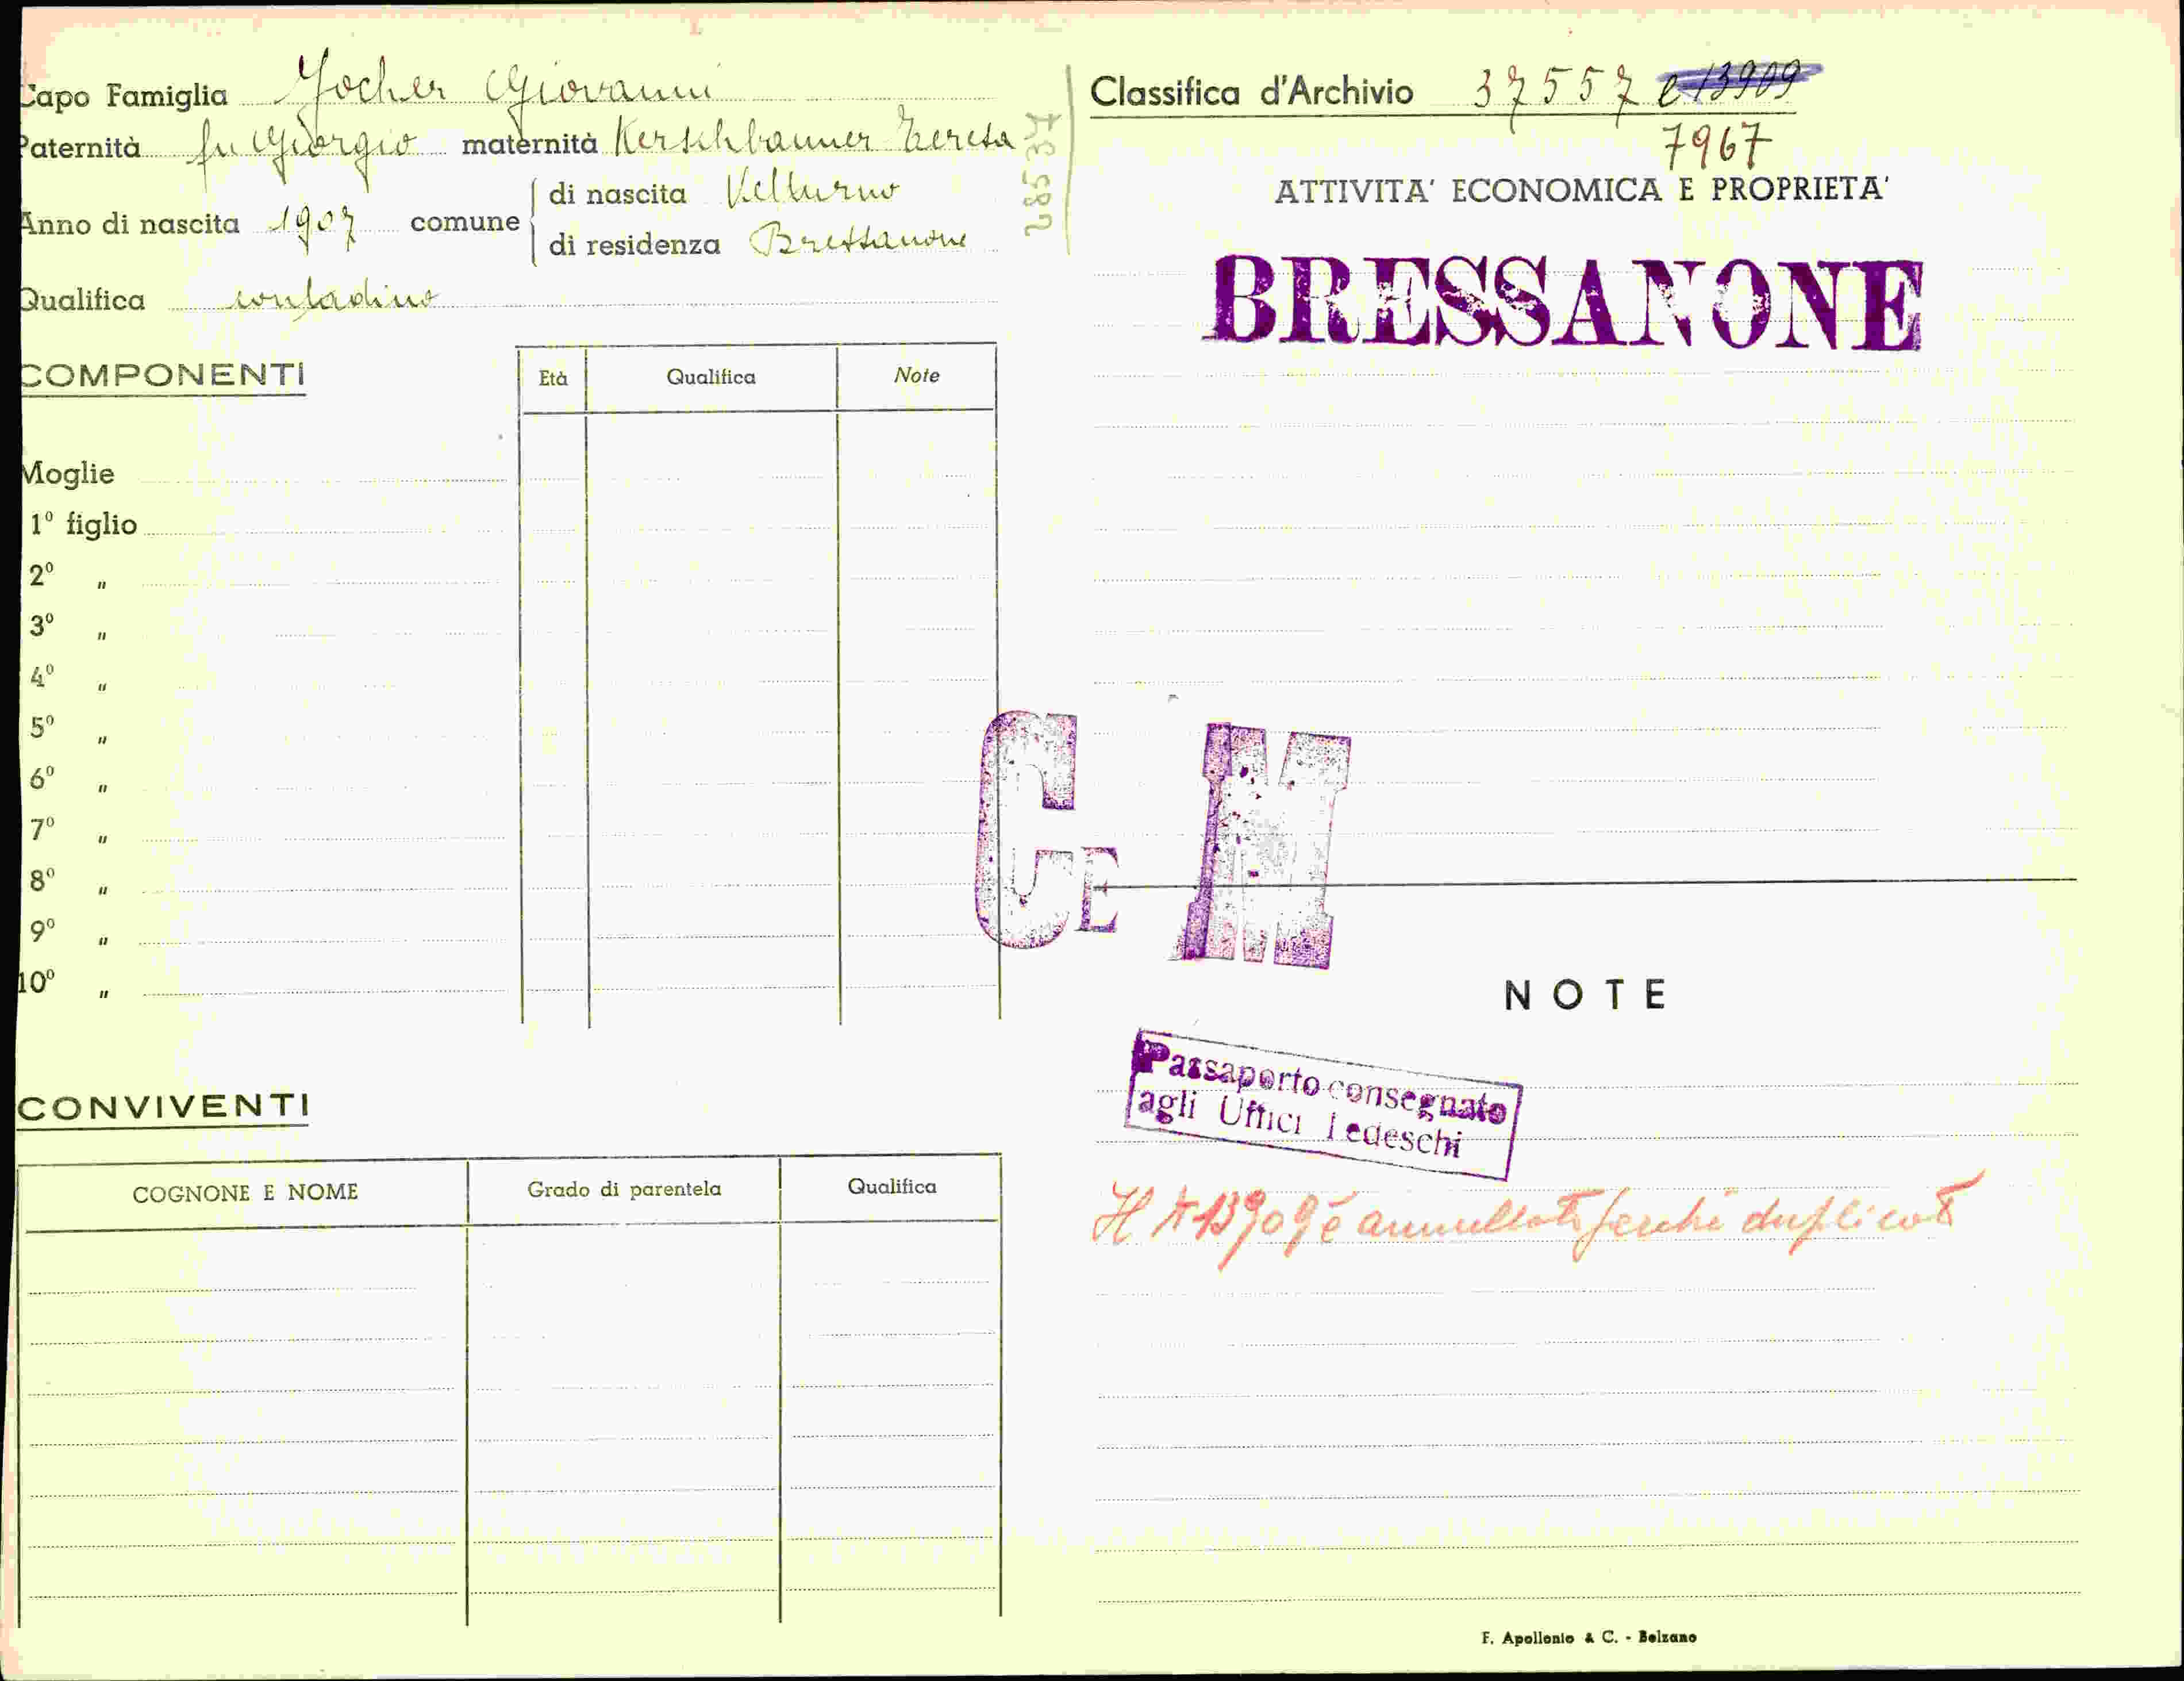 Capo Famiglia Jocher Giovanni
Paternità fu Giorgio maternità Kerschbaumer Teresa
Anno di nascita 1907 comune di nascita Velturno
di residenza Bressanone
Qualifica contadino
COMPONENTI
Età Qualifica Note
Moglie
1º figlio
2º "
3º "
4º "
5º "
6º "
7º "
8º "
9º "
10º "
CONVIVENTI
COGNONE E NOME Grado di parentela Qualifica
Classifica d'Archivio 37557 e 13909
7967
ATTIVITA' ECONOMICA E PROPRIETA'
BRESSANONE
CE M
NOTE
Passaporto consegnato
agli Uffici Tedeschi
Il N 13909 è annullato perchè duplicato
F. Apollonio & C. - Bolzano